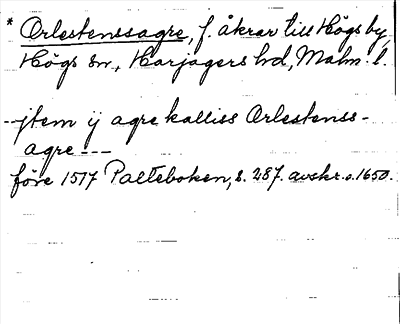 * Orlestenssagre, f. åkrar till Högs by,
Högs sn., Harjagers hd, Malm. l.
-- jtem ij agre kalliss Orlestenss-
agre ---
före 1517 Palteboken, s. 287. avskr. o. 1650.